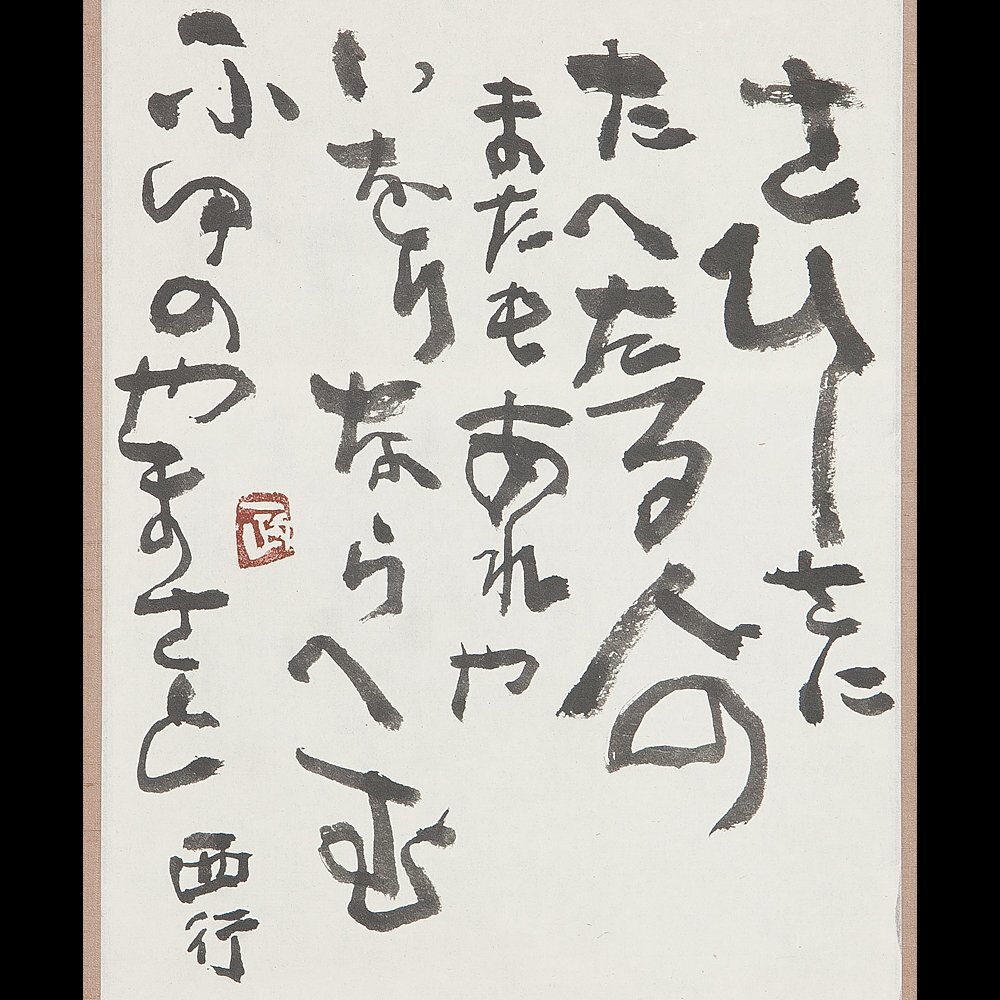 さひしさに
たへたる人の
またもあれや
いをりならへむ
ふゆのやまさと 西行